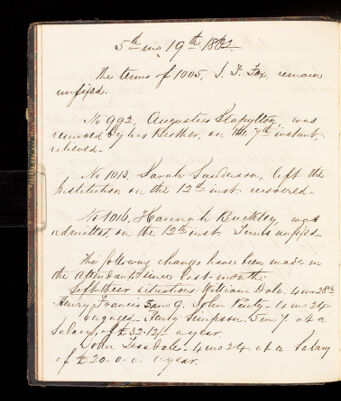 5th mo 19th 1861
The terms of 1005, J. T. Fox, remain
unfixed.
No 992, Augustus Stapylton, was
removed by his Brother, on the 7th instant,
relieved.
No 1013, Sarah Sanderson, left the
Institution on the 12th inst recovered.
No 1016, Hannah Buckley, was
admitted on the 12th inst Terms unfixed.
The following changes have been made in
the attendants since last month
Left their situations William Dale 4 mo 28th
Henry Francis 5 mo 9. John 4 mo 24
engaged Henry Simpson 5 mo 7 at a
Salary of £32-12/- a year.
John Teasdale 4 mo 24 at a Salary
of £20-0-0 a year.